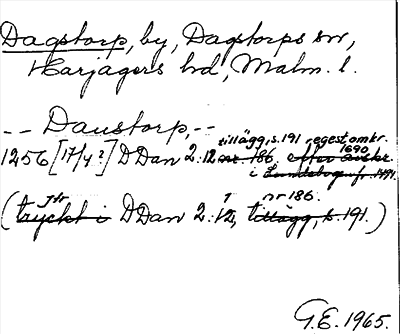 Dagstorp, by, Dagstorps sn,
Harjagers hd, Malm. l.
-- Daustorp, --
tillägg, s. 191 regest omkr.
1256 [17/4?] DDan 2:12 nr 186. efter avskr. 1690
i Lundebogen fr. 1494.
Jfr 1 nr 186.
(tryckt i DDan 2:12, tillägg, s. 191.)
G.E. 1965.